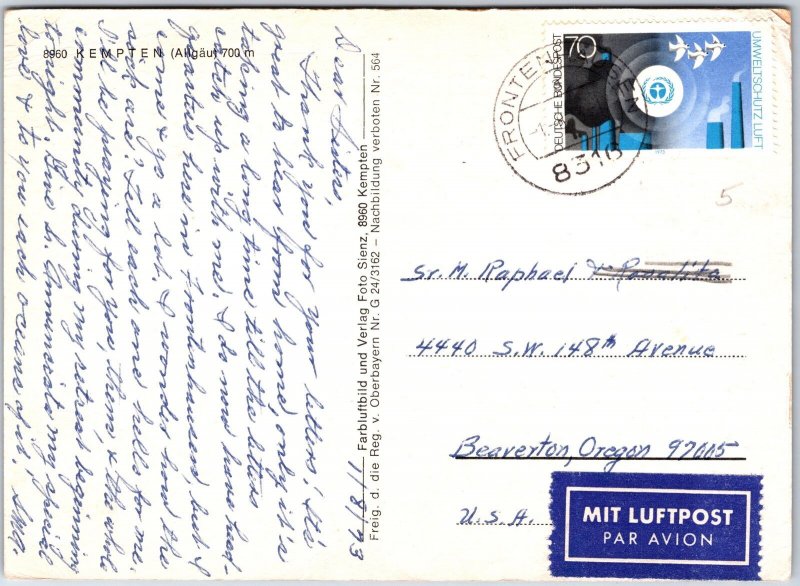 8960 KEMPTEN (Allgäu) 700 m
11/8/73
Dear Sister,
Thank you for your letters! It's
great to hear from home, only it's
taking a long time till the letters
catch up with me. I do now have head-
quarters here in Frontenhausen, but I
come & go a lot. I wonder how the
sick are? Tell each one hello for me.
I'll be praying for you, them, & the whole
community during my retreat beginning
tonight. Sine b. Ammuniati my special
love & to you each oceans of it,
Farbluftbild und Verlag Foto Sienz, 8960 Kempten
Freig. d. die Reg. v. Oberbayern Nr. G 24/3162 – Nachbildung verboten Nr. 564
DEUTSCHE BUNDESPOST
70
UMWELTSCHUTZ LUFT
1973
FRONTENHAUSEN
8316
5
Sr. M. Raphael & Rosalita
4440 S.W. 148th Avenue
Beaverton, Oregon 97005
U.S.A.
MIT LUFTPOST
PAR AVION